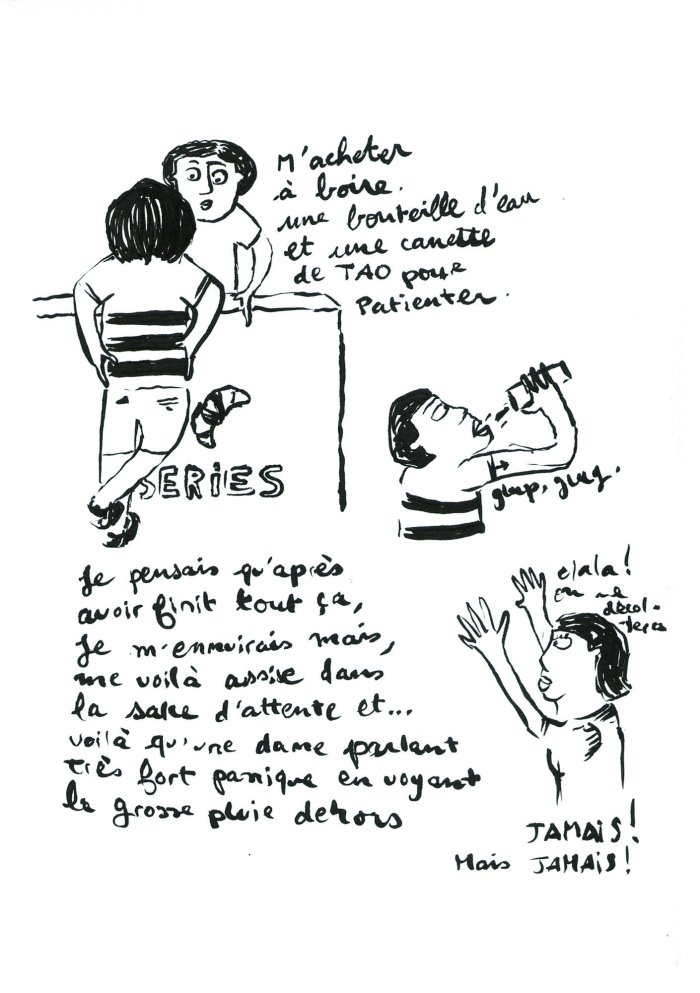 M'acheter
à boire.
une bouteille d'eau
et une canette
de TAO pour
Patienter.
SERIES
glup, glup.
Je pensais qu'après
avoir finit tout ça,
Je m'ennuirais mais,
me voilà assise dans
la salle d'attente et...
voilà qu'une dame parlant
très fort panique en voyant
la grosse pluie dehors
olala!
on ne
décol-
lera
JAMAIS!
Mais JAMAIS!